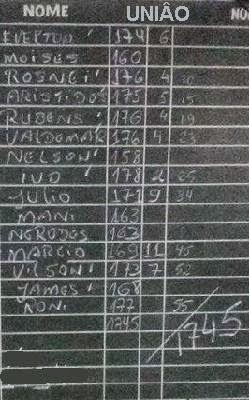 NOME UNIÂO NO
EVERTON 174 6
MOISES 160
ROSNEI 176 4 10
ARISTIDOS 175 5 15
RUBENS 176 4 19
VALDOMAR 176 4 23
NELSON 158
IVO 178 2 25
JULIO 171 9 34
MANI 163
NERODES 163
MARCIO 169 11 45
VILSON 173 7 52
JAMES 168
RONI 177 55
1745 1745